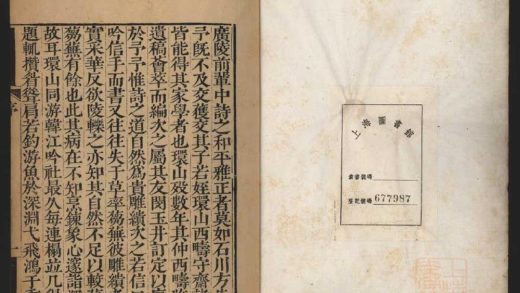 上海圖書館
索書號碼
登記號碼 677987
廣陵前輩中詩之和平雅正者莫如石川方
予旣不及交獲交其子若姪環山西疇守齋
皆能得其家學者也環山殁數年其仲西疇
遺稿會萃而編次之屬其友閔玉井訂定以
於予予惟詩之道自然爲貴雕繢次之若信
吟信手而書又往往失于草率蒭蕪彼雕繢
實采華反欲陵轢之亦知其自然不足以較
蒭蕪有餘也此其病在不知烹鍊象心邃詣
故耳環山同游韓江吟社最久每連榻並几
題輒攢眉聳肩若釣游魚於深淵弋飛鴻于
序
一